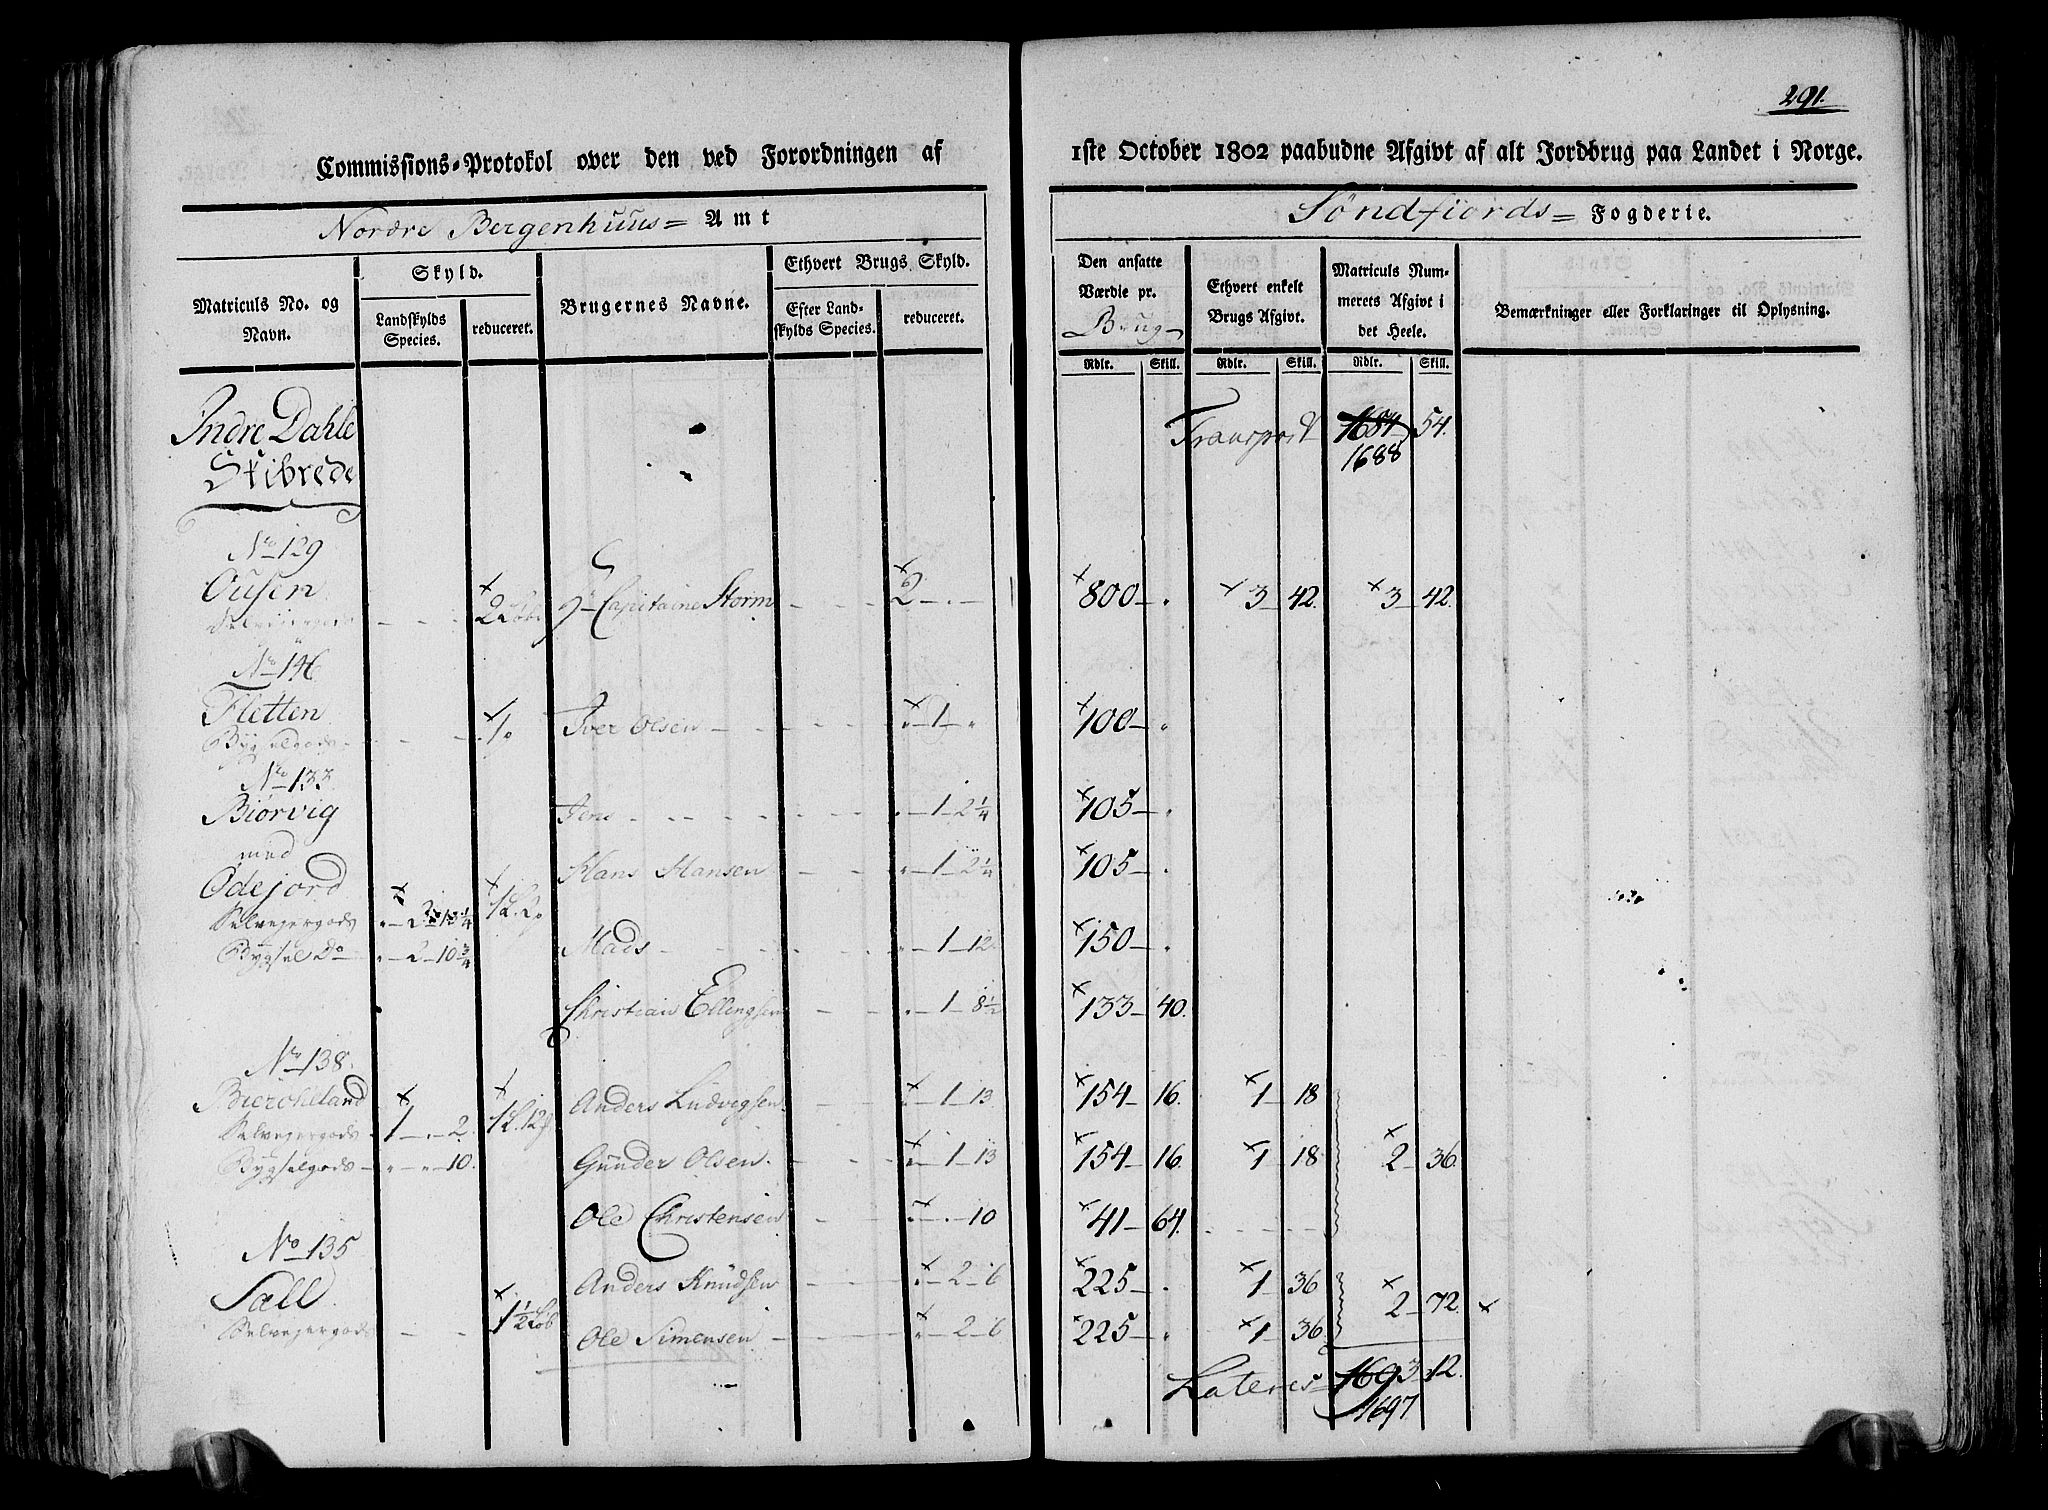 291.
Commissions-Protokol over den ved Forordningen af
1ste October 1802 paabudne Afgivt af alt Jordbrug paa Landet i Norge.
Nordre Bergenhuus= Amt
Søndfiords= Fogderie.
Matriculs No. og Navn.
Skyld.
Landskylds Species.
reduceret.
Brugernes Navne.
Ethvert Brugs Skyld.
Efter Landskylds Species.
reduceret.
Den ansatte Værdie pr.
Brug
Ethvert enkelt Brugs Afgivt.
Matriculs Nummerets Afgivt i det Heele.
Bemærkninger eller Forklaringer til Oplysning.
Rdlr. Skill. Rdlr. Skill. Rdlr. Skill.
Indre Dahle
Skibrede
Transport 1684 54.
1688
No 129
Ousen
2 Løb Hr Capitaine Storm 2 800 3 42. 3 42.
No 146
Fletten
Bygselgods 1 Iver Olsen 1 100
No 133
Biørvig
Jens 1 2 1/4 105
med
Ødejord
Hans Hansen 1 2 1/4 105
Selvejergods
Bygsel Do 2 10 3/4
Mads 1 12 150
Christian Ellengsen 1 8 1/2 133 40.
No 138.
Biercheland
Anders Ludvigsen 1 13 154 16. 1 18
Selvejergods 1 2. 1 L. 12
Bygselgods 10.
Gunder Olsen 1 13 154 16. 1 18 2 36.
Ole Christensen 10 41 64.
No 135
Sæll
Anders Knudsen 2 6 225 1 36
Selvejergods 1 1/2 Løb
2 72.
Ole Simensen 2 6 225 1 36
Lateres 1693 12.
1697